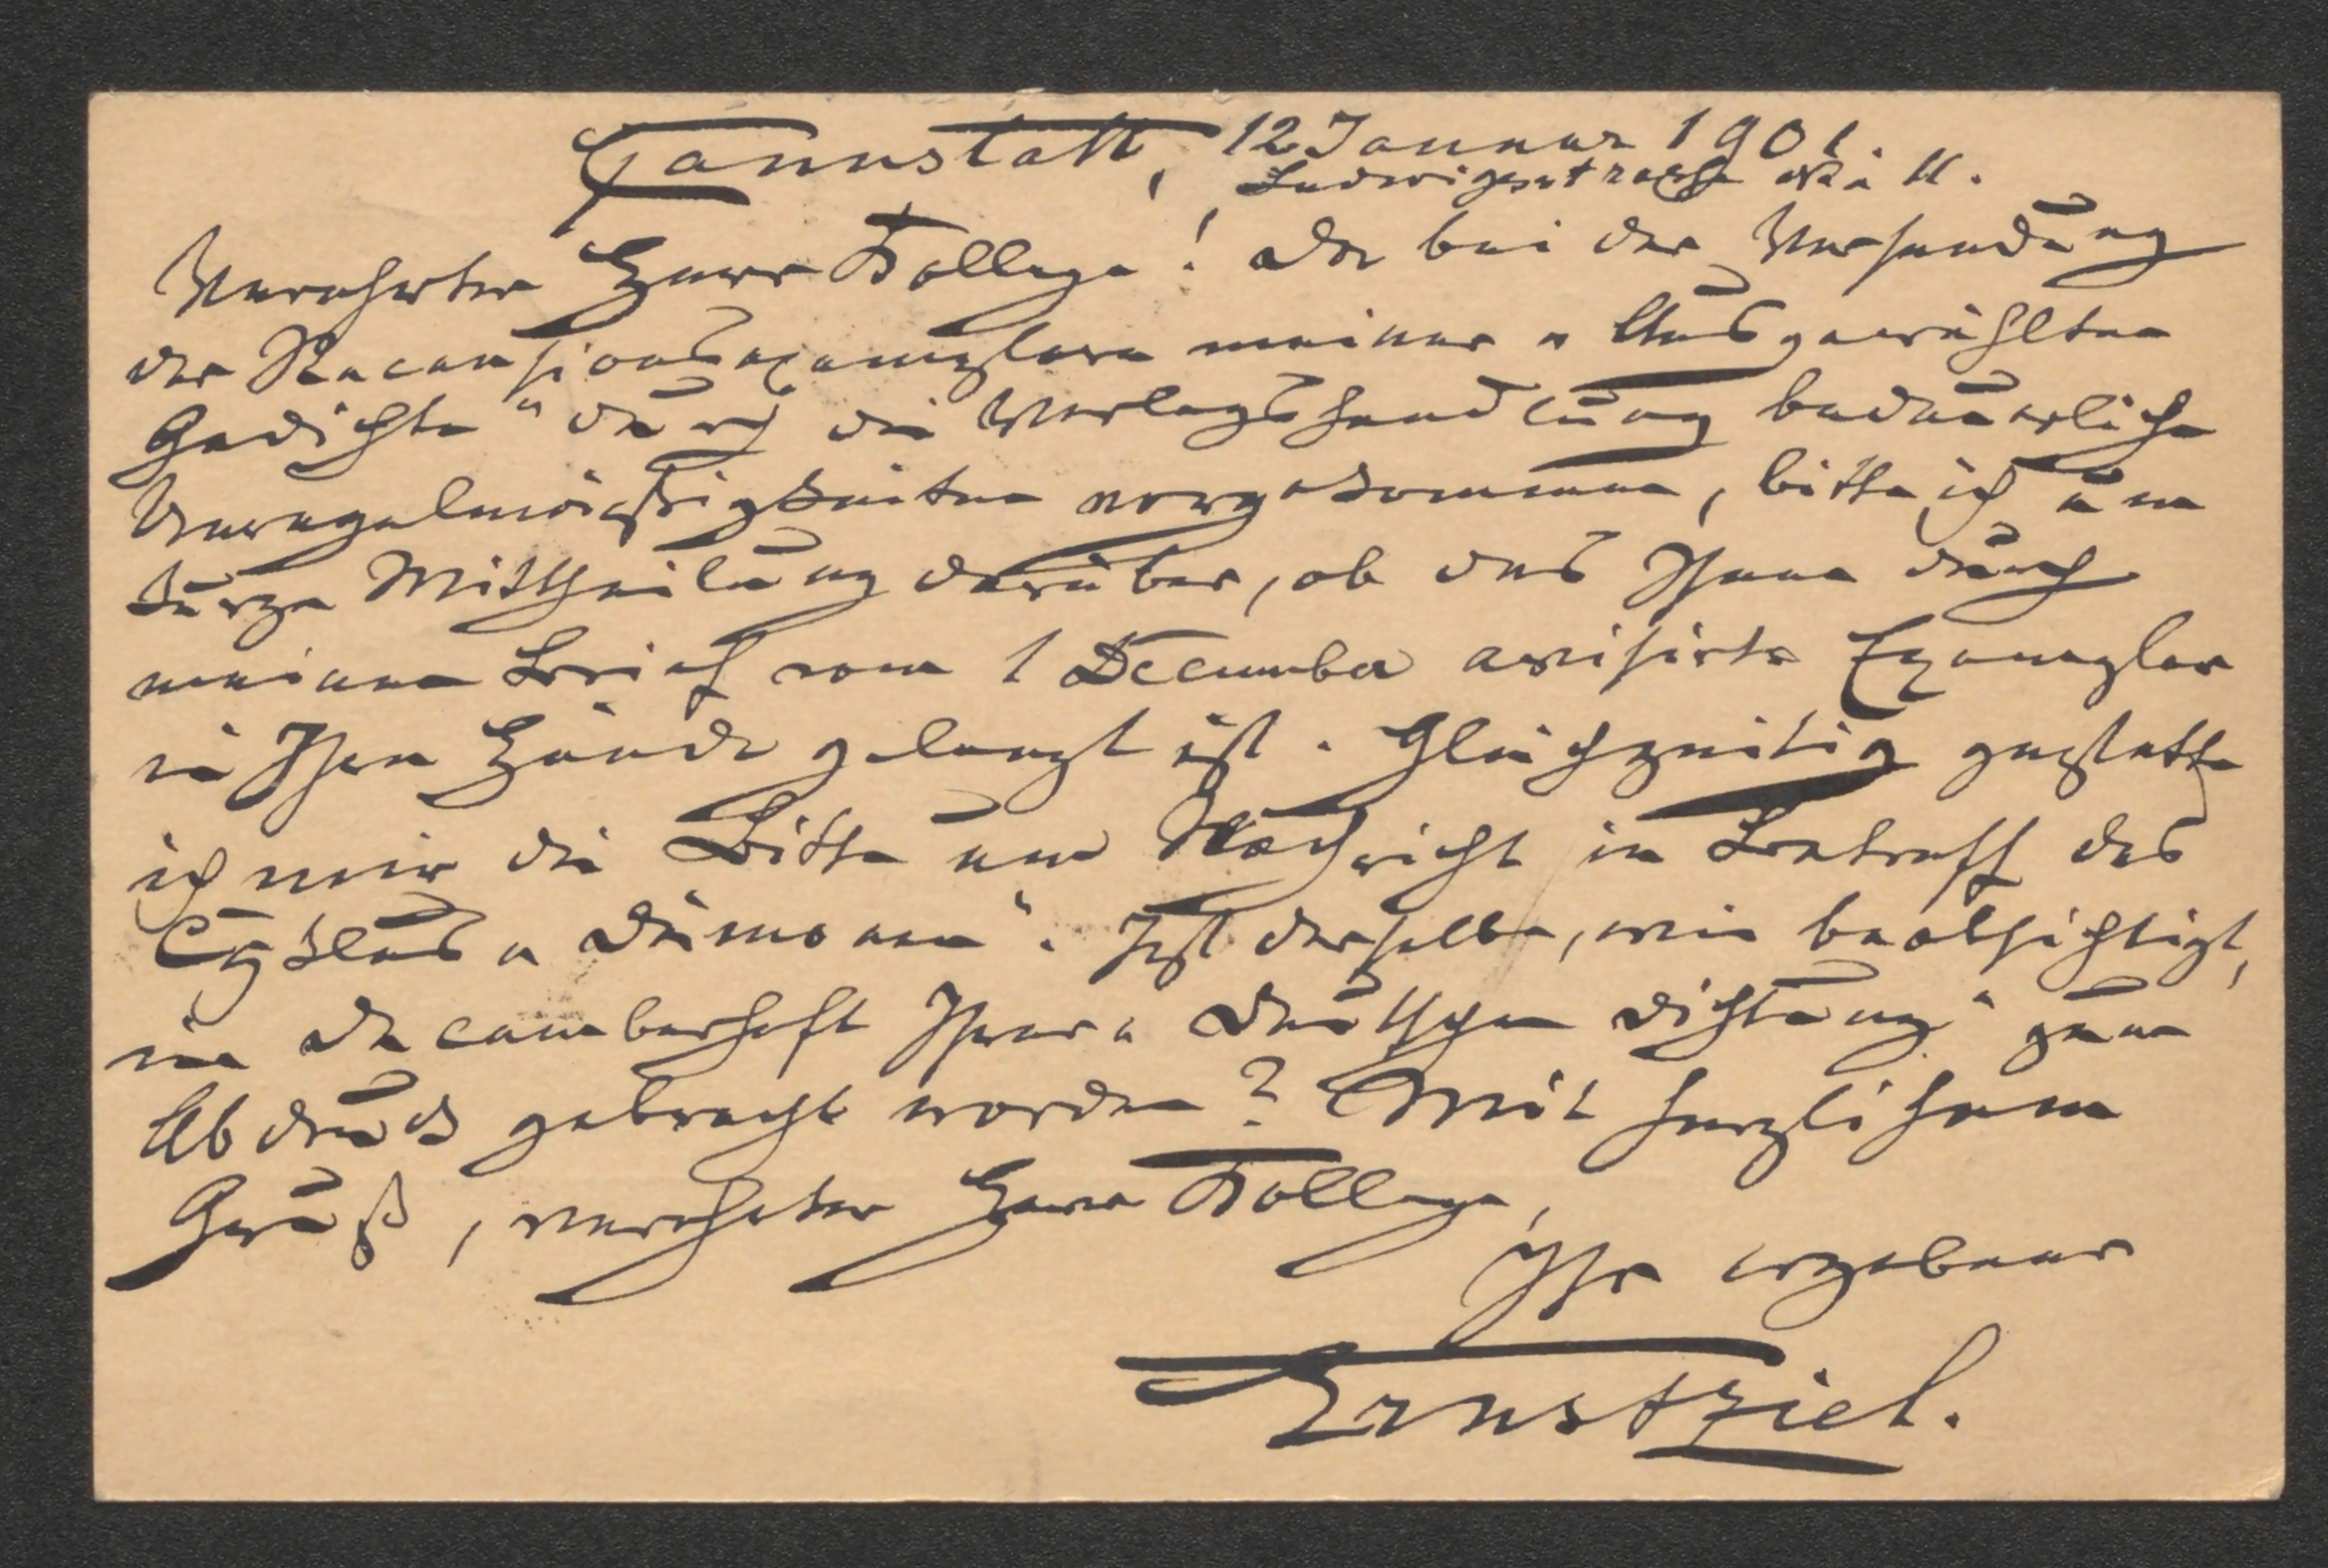 Cannstatt, 12 Januar 1901.
Ludwigsstrasse II.
Verehrter Herr Kollege! Da bei der Versendung
der Recensionsexemplare meiner „Ausgewählten
Gedichte“ durch die Verlagshandlung bedauerliche
Unregelmässigkeiten vorgekommen, bitte ich um
kurze Mittheilung darüber, ob das Ihnen durch
meinen Brief vom 1 December avisirte Exemplar
in Ihre Hände gelangt ist. Gleichzeitig gestatte
ich mir die Bitte um Nachricht in Betreff des
Cyklus „Dämonen“. Ist derselbe, wie beabsichtigt,
im Decemberheft Ihrer „Deutschen Dichtung“ zum
Abdruck gebracht worden? Mit herzlichem
Gruß, verehrter Herr Kollege,
Ihr ergebener
Ernst Ziel.